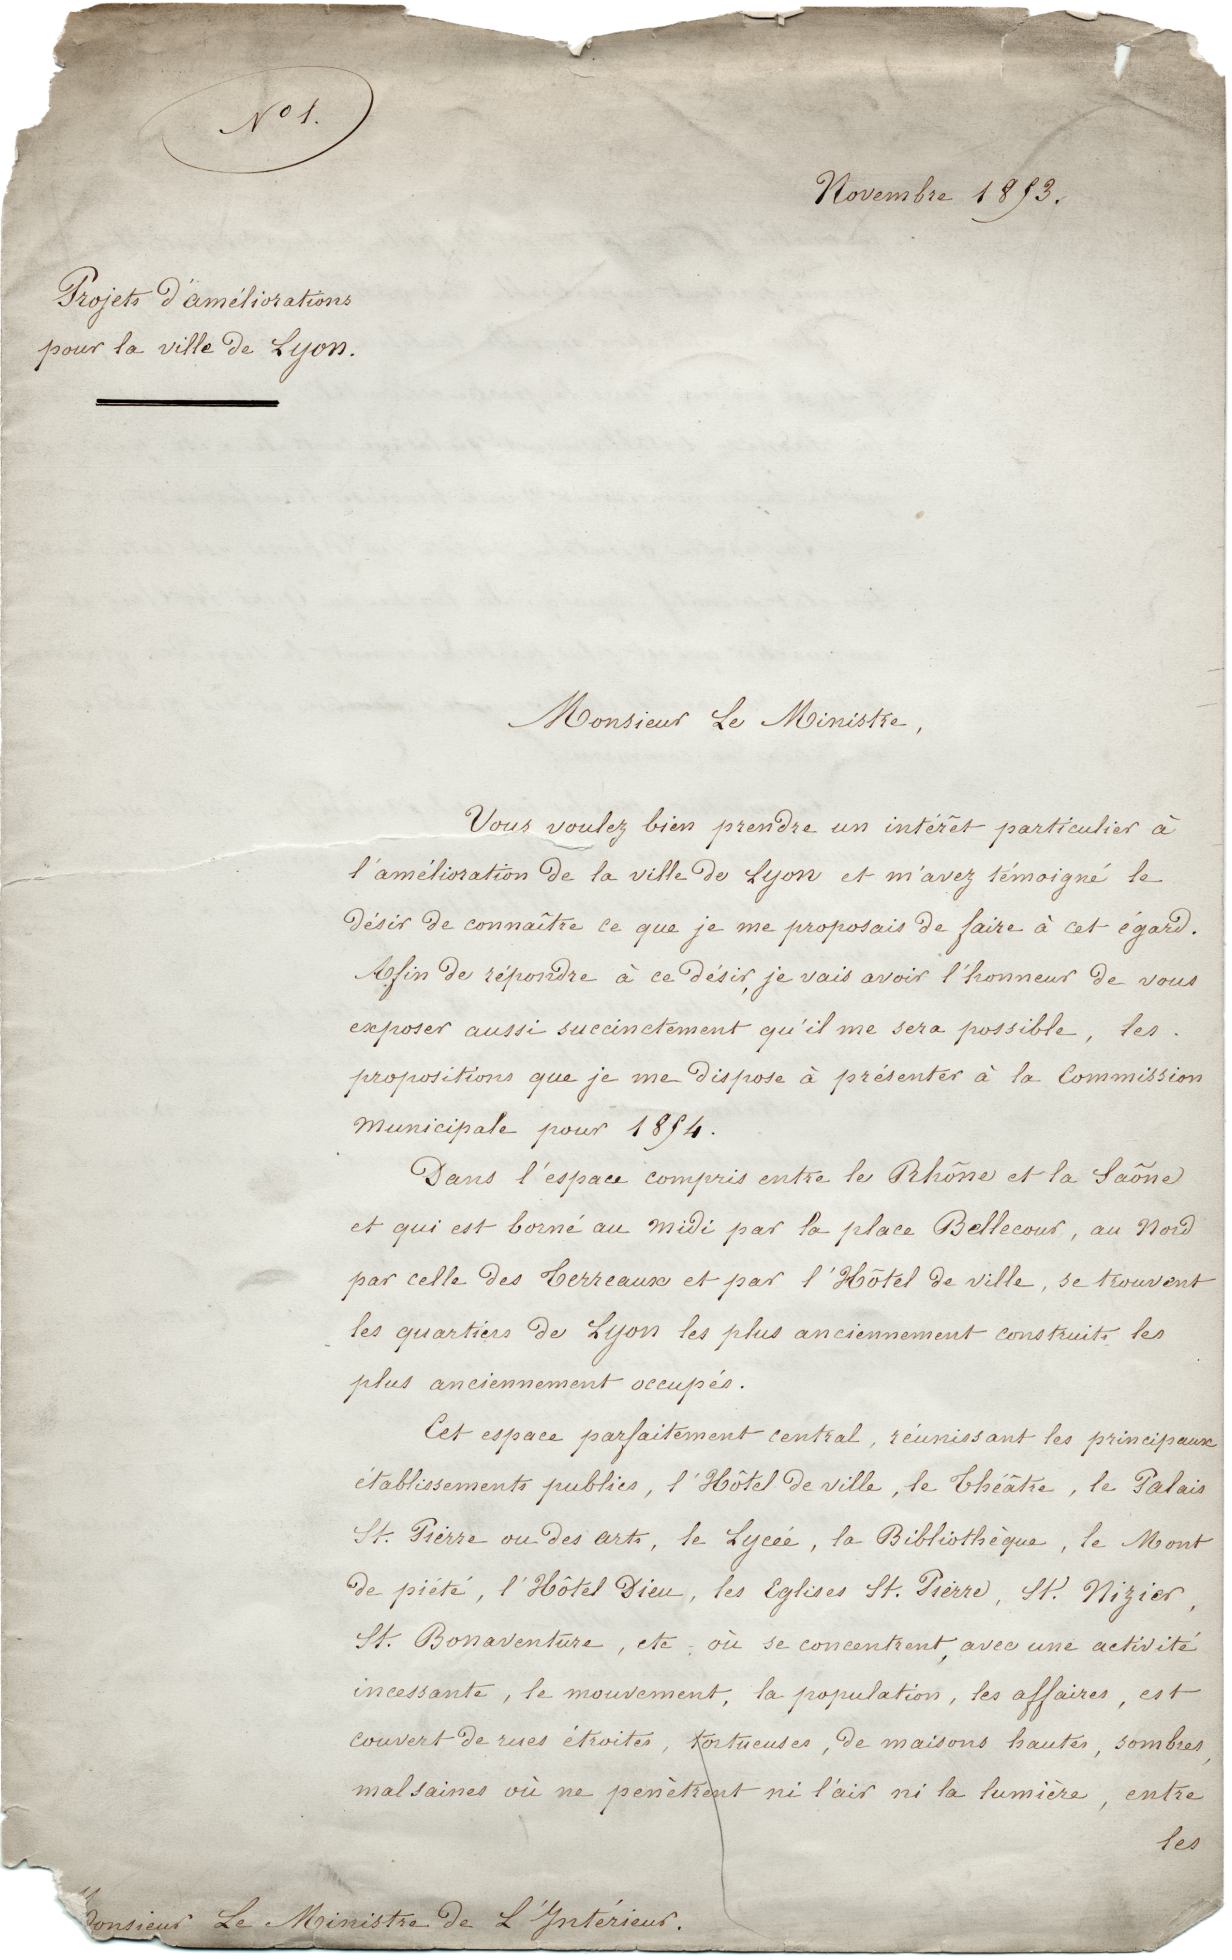 N° 1.
Novembre 1853.
Projets d'améliorations
pour la ville de Lyon.
Monsieur Le Ministre,
Vous voulez bien prendre un intérêt particulier à
l'amélioration de la ville de Lyon et m'avez témoigné le
désir de connaître ce que je me proposais de faire à cet égard.
Afin de répondre à ce désir, je vais avoir l'honneur de vous
exposer aussi succinctement qu'il me sera possible, les
propositions que je me dispose à présenter à la Commission
Municipale pour 1854.
Dans l'espace compris entre le Rhône et la Saône
et qui est borné au midi par la place Bellecour, au Nord
par celle des Terreaux et par l'Hôtel de ville, se trouvent
les quartiers de Lyon les plus anciennement construits les
plus anciennement occupés.
Cet espace parfaitement central, réunissant les principaux
établissements publics, l'Hôtel de ville, le Théâtre, le Palais
St. Pierre ou des arts, le Lycée, la Bibliothèque, le Mont
de piété, l'Hôtel Dieu, les Eglises St. Pierre, St. Nizier,
St. Bonaventure, etc. où se concentrent, avec une activité
incessante, le mouvement, la population, les affaires, est
couvert de rues étroites, tortueuses, de maisons hautes, sombres,
malsaines où ne penètrent ni l'air ni la lumière, entre
les
Monsieur Le Ministre de L'Intérieur.